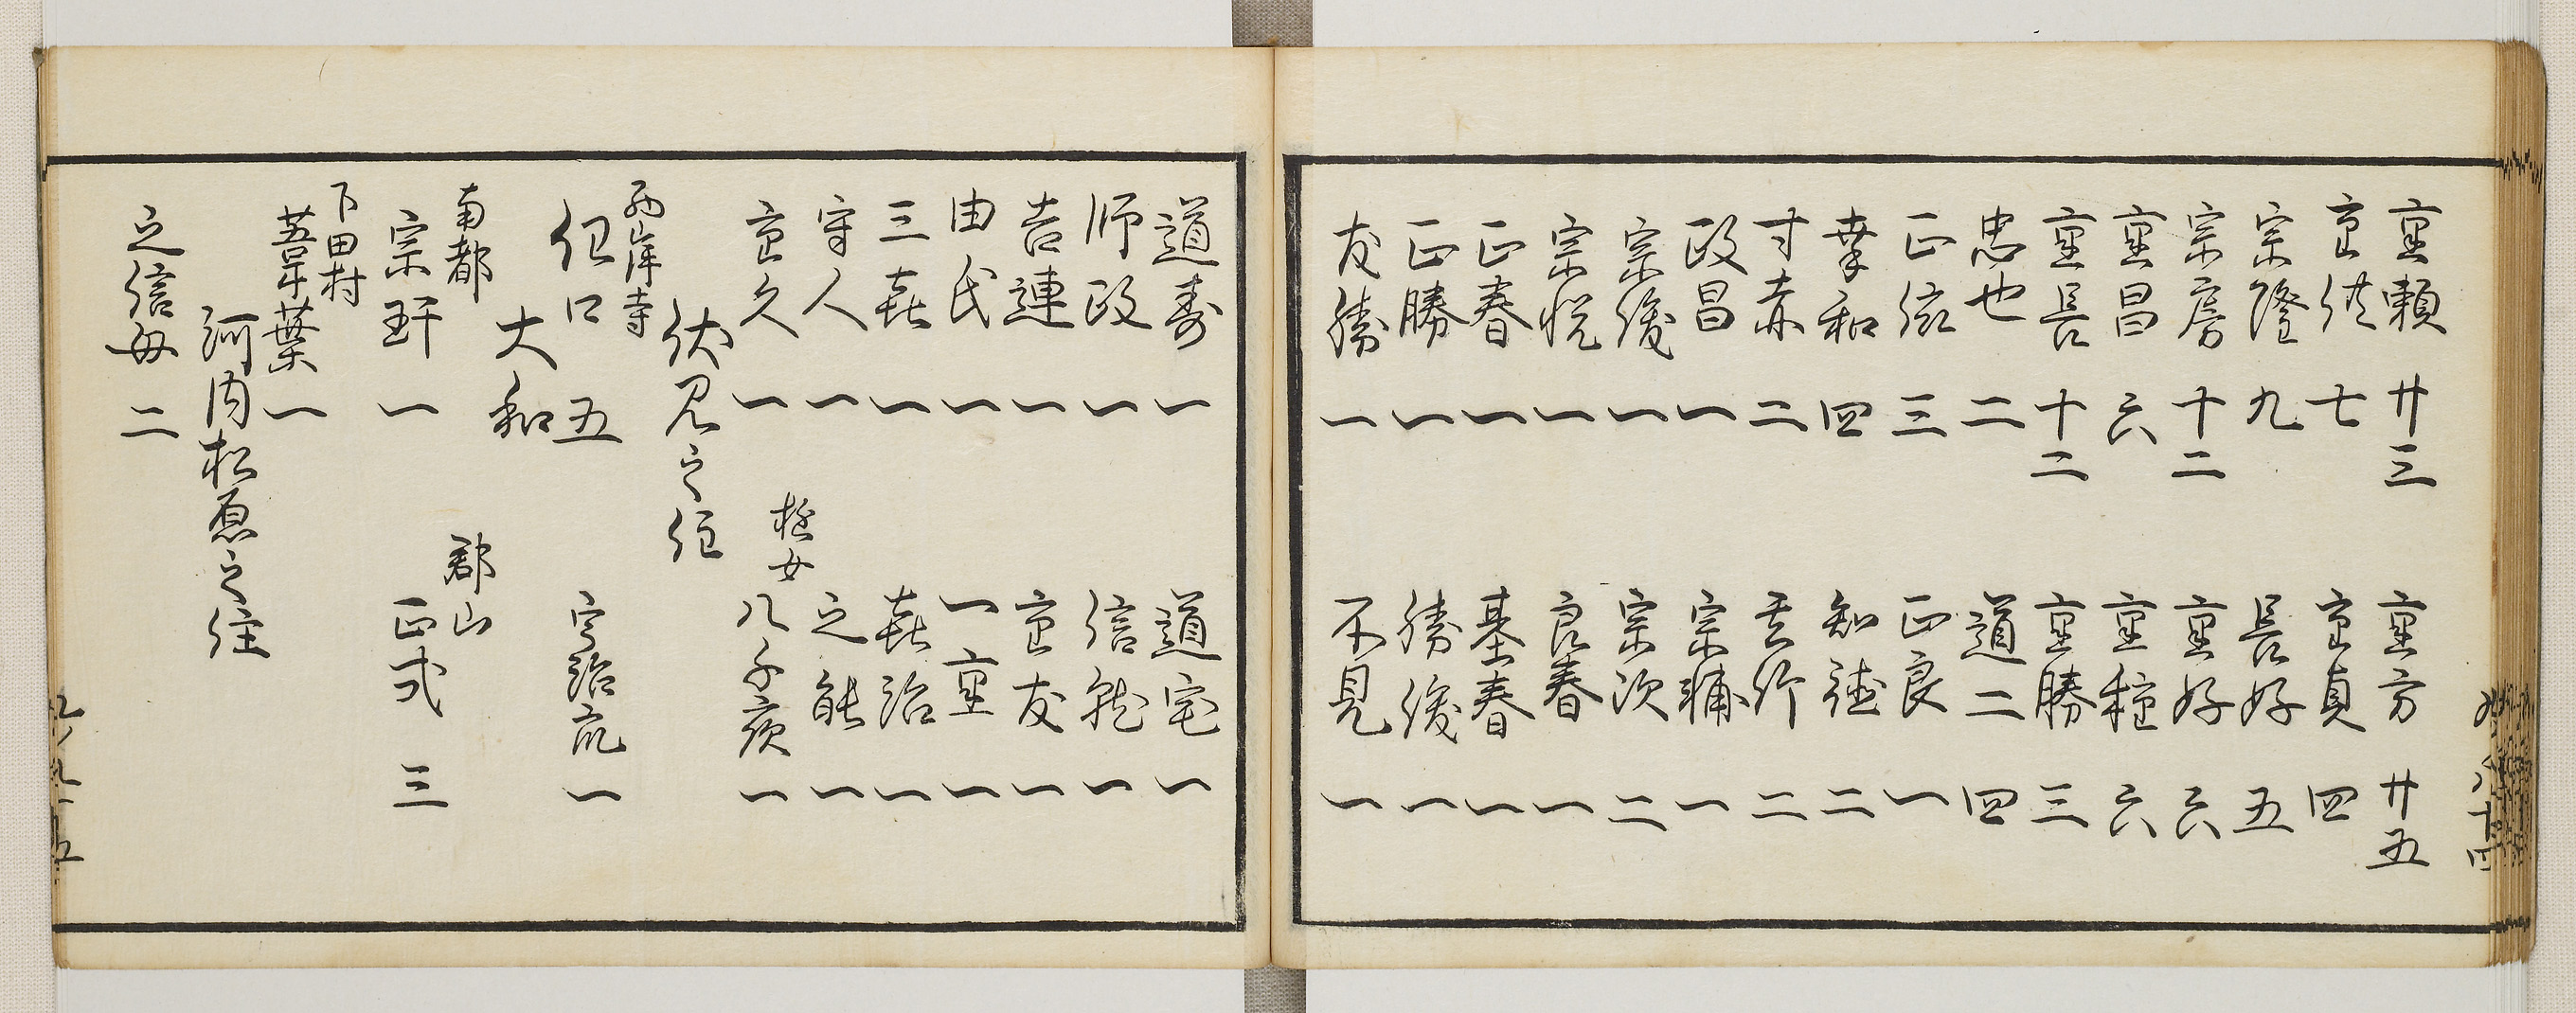 重頼 廿三 重方 廿五
重供 七 重貞 四
宗隆 九 長好 五
宗房 十二 重好 六
重昌 六 重種 六
重長 十二 重勝 三
忠也 二 道二 四
正依 三 正良 一
幸和 四 知徳 二
寸赤 二 玄竹 二
政昌 一 宗輔 一
宗俊 一 宗次 二
宗悦 一 良春 一
正春 一 基春 一
正勝 一 勝俊 一
友勝 一 不見 一
道寿 一 道宅 一
師政 一 信就 一
吉連 一 重友 一
由氏 一 一重 一
三㐂 一 㐂治 一
守人 一 之能 一
重久 一 女 八千夜 一
伏見之住
西岸寺
任口 五 宇治 一
大和
南都 郡山
宗玕 一 正式 三
下田村
葉 一
河内松原之住
之信母 二